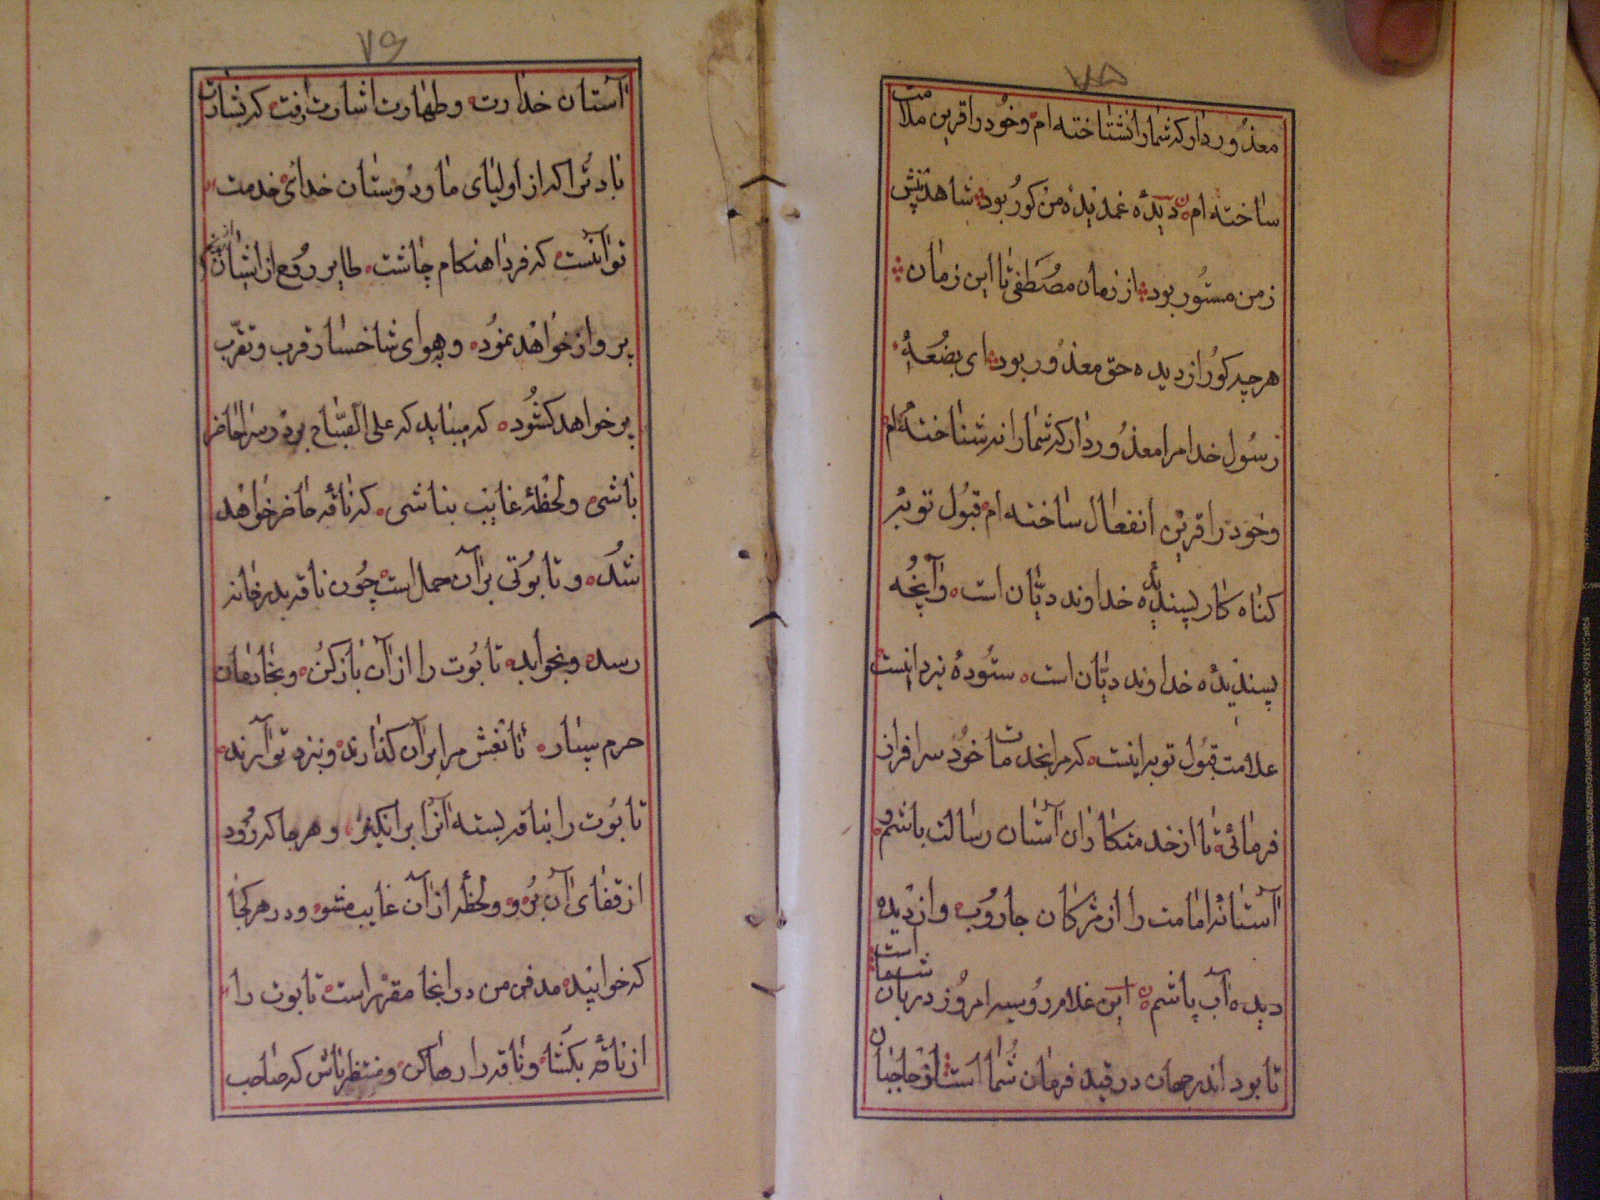 ۷۵
معذور دار که شما را نشناخته ام و خود را قرین ملامت
ساخته ام دیده غمدیده من کور بود شاهد بینش
زمن مستور بود از زمان مصطفی تا این زمان
هر چه کور از دیده حق معذور بود ای بضعهٔ
رسول خدا مرا معذور دار که شما را نه شناخته ام
وخود را قرین انفعال ساخته ام قبول توبهٔ
کناه کار پسندیده خداوند دیّان است وآنچه
پسندیده خداوند دیّان است ستودهٔ یزدانیست
علامت قبول توبه اینست که مرا بخدمت ما خود سرافراز
فرمائی تا از خدمتکاران آستان رسالت باشم و
آستانه امامت را از مژکان جاروب و از دیده
دیده آب پاشم این غلام روسیه امروز دربان شما است
تا بود اندر جهان در قید فرمان شما است از حاجبان
۷۶
آستان خدارت وطهارت اشارت رفت که بشارت
باد ترا که از اولیای ما و دوستان خدائی خدمت
تو آنست که فردا هنکام چاشت طایر روح از ایشان
پرواز خواهد نمود و بهوای شاخسار قرب و تقرّب
پر خواهد کشود که میباید که علی الصّباح بر در سرا حاضر
باشی ولحظهٔ غایب نباشی که ناقه حاضر خواهد
شد و تابوتی بر آن حمل است چون ناقه بدر خانه
رسد و بخوابد تابوت را از آن باز کن و بخادمان
حرم سپار تا نعش مرا بر آن کذارند و نزد تو آرند
تابوت را بناقه بسته آنرا برانکیز و هر جا که رود
از قفای آن برو و لحظه از آن غایب مشو و در هر کجا
که خوابید مدفن من در انجا مقرر است تابوت را
از ناقه بکشا و ناقه را رها کن و منتظر باش که صاحب